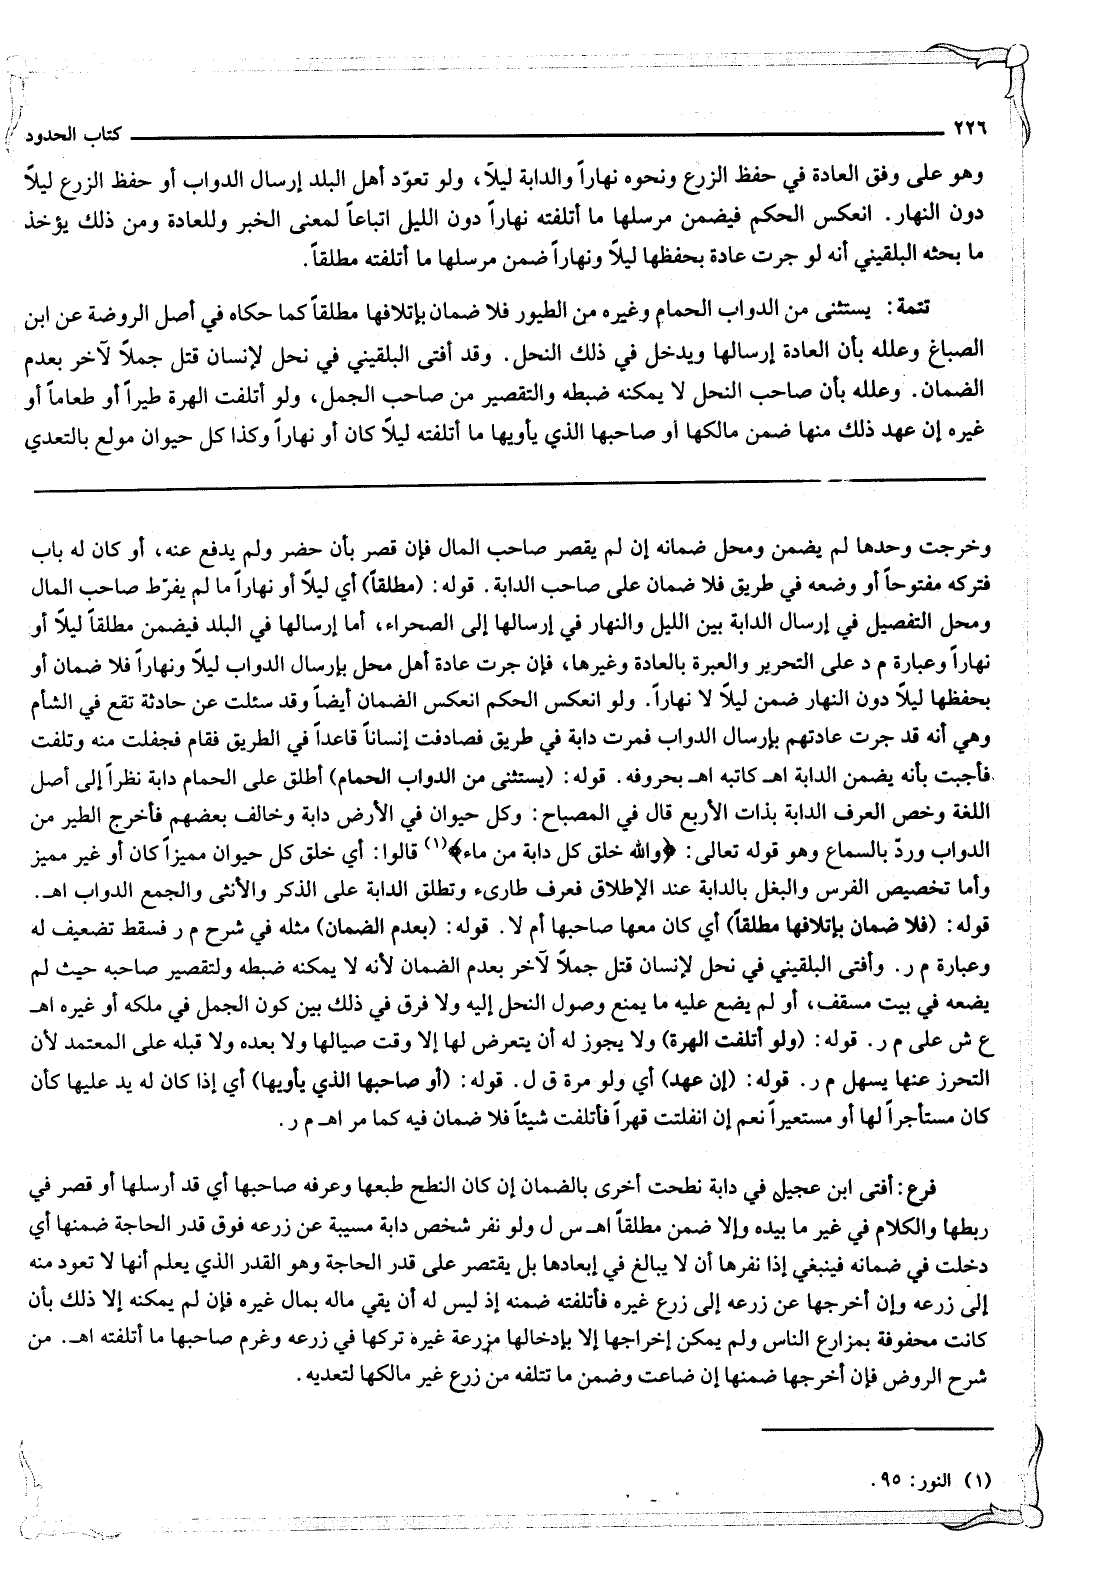 ٢٢٦ كتاب الحدود
وهو على وفق العادة في حفظ الزرع ونحوه نهاراً والدابة ليلاً، ولو تعوّد أهل البلد إرسال الدواب أو حفظ الزرع ليلاً
دون النهار. انعكس الحكم فيضمن مرسلها ما أتلفته نهاراً دون الليل اتباعاً لمعنى الخبر وللعادة ومن ذلك يؤخذ
ما بحثه البلقيني أنه لو جرت عادة بحفظها ليلاً ونهاراً ضمن مرسلها ما أتلفته مطلقاً.
تتمة: يستثنى من الدواب الحمام وغيره من الطيور فلا ضمان بإتلافها مطلقاً كما حكاه في أصل الروضة عن ابن
الصباغ وعلله بأن العادة إرسالها ويدخل في ذلك النحل. وقد أفتى البلقيني في نحل لإنسان قتل جملاً لآخر بعدم
الضمان. وعلله بأن صاحب النحل لا يمكنه ضبطه والتقصير من صاحب الجمل، ولو أتلفت الهرة طيراً أو طعاماً أو
غيره إن عهد ذلك منها ضمن مالكها أو صاحبها الذي يأويها ما أتلفته ليلاً كان أو نهاراً وكذا كل حيوان مولع بالتعدي
وخرجت وحدها لم يضمن ومحل ضمانه إن لم يقصر صاحب المال فإن قصر بأن حضر ولم يدفع عنه، أو كان له باب
فتركه مفتوحاً أو وضعه في طريق فلا ضمان على صاحب الدابة. قوله: (مطلقاً) أي ليلاً أو نهاراً ما لم يفرّط صاحب المال
ومحل التفصيل في إرسال الدابة بين الليل والنهار في إرسالها إلى الصحراء، أما إرسالها في البلد فيضمن مطلقاً ليلاً أو
نهاراً وعبارة م د على التحرير والعبرة بالعادة وغيرها، فإن جرت عادة أهل محل بإرسال الدواب ليلاً ونهاراً فلا ضمان أو
بحفظها ليلاً دون النهار ضمن ليلاً لا نهاراً. ولو انعكس الحكم انعكس الضمان أيضاً وقد سئلت عن حادثة تقع في الشأم
وهي أنه قد جرت عادتهم بإرسال الدواب فمرت دابة في طريق فصادفت إنساناً قاعداً في الطريق فقام فجفلت منه وتلفت
فأجبت بأنه يضمن الدابة اهـ كاتبه اهـ بحروفه. قوله: (يستثنى من الدواب الحمام) أطلق على الحمام دابة نظراً إلى أصل
اللغة وخص العرف الدابة بذات الأربع قال في المصباح: وكل حيوان في الأرض دابة وخالف بعضهم فأخرج الطير من
الدواب وردّ بالسماع وهو قوله تعالى: ﴿والله خلق كل دابة من ماء﴾(١) قالوا: أي خلق كل حيوان مميزاً كان أو غير مميز
وأما تخصيص الفرس والبغل بالدابة عند الإطلاق فعرف طارىء وتطلق الدابة على الذكر والأنثى والجمع الدواب اهـ.
قوله: (فلا ضمان بإتلافها مطلقاً) أي كان معها صاحبها أم لا. قوله: (بعدم الضمان) مثله في شرح م ر فسقط تضعيف له
وعبارة م ر. وأفتى البلقيني في نحل لإنسان قتل جملاً لآخر بعدم الضمان لأنه لا يمكنه ضبطه ولتقصير صاحبه حيث لم
يضعه في بيت مسقف، أو لم يضع عليه ما يمنع وصول النحل إليه ولا فرق في ذلك بين كون الجمل في ملكه أو غيره اهـ
ع ش على م ر. قوله: (ولو أتلفت الهرة) ولا يجوز له أن يتعرض لها إلا وقت صيالها ولا بعده ولا قبله على المعتمد لأن
التحرز عنها يسهل م ر. قوله: (إن عهد) أي ولو مرة ق ل. قوله: (أو صاحبها الذي يأويها) أي إذا كان له يد عليها كأن
كان مستأجراً لها أو مستعيراً نعم إن انفلتت قهراً فأتلفت شيئاً فلا ضمان فيه كما مر اهـ م ر.
فرع: أفتى ابن عجيل في دابة نطحت أخرى بالضمان إن كان النطح طبعها وعرفه صاحبها أي قد أرسلها أو قصر في
ربطها والكلام في غير ما بيده وإلا ضمن مطلقاً اهـ س ل ولو نفر شخص دابة مسيبة عن زرعه فوق قدر الحاجة ضمنها أي
دخلت في ضمانه فينبغي إذا نفرها أن لا يبالغ في إبعادها بل يقتصر على قدر الحاجة وهو القدر الذي يعلم أنها لا تعود منه
إلى زرعه وإن أخرجها عن زرعه إلى زرع غيره فأتلفته ضمنه إذ ليس له أن يقي ماله بمال غيره فإن لم يمكنه إلا ذلك بأن
كانت محفوفة بمزارع الناس ولم يمكن إخراجها إلا بإدخالها مزرعة غيره تركها في زرعه وغرم صاحبها ما أتلفته اهـ. من
شرح الروض فإن أخرجها ضمنها إن ضاعت وضمن ما تتلفه من زرع غير مالكها لتعديه.
(١) النور: ٩٥.